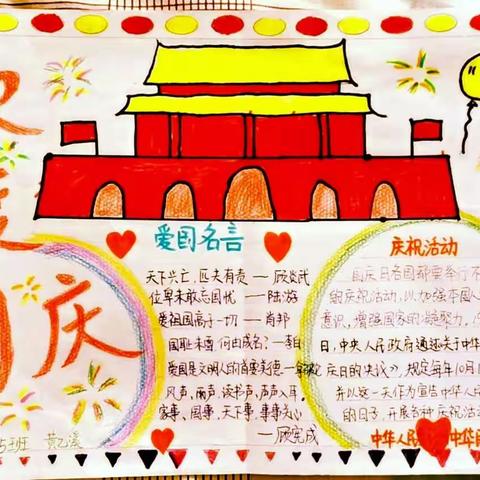 欢
度
国
庆
爱国名言
天下兴亡,匹夫有责 — 顾炎武
位卑未敢忘国忧 — 陆游
爱祖国高于一切 — 肖邦
国耻未雪,何由成名?—李白
爱国是文明人的首要美德—拿破仑
风声、雨声、读书声,声声入耳。
家事、国事、天下事,事事关心
— 顾宪成
庆祝活动
国庆日各国都要举行不
的庆祝活动,以加强本国人
意识,增强国家的凝聚力,
日,中央人民政府通过关于中华
庆日的决议》,规定每年10月1
并以这一天作为宣告中华人民
的日子,开展各种庆祝活动
中华人民
中华
班